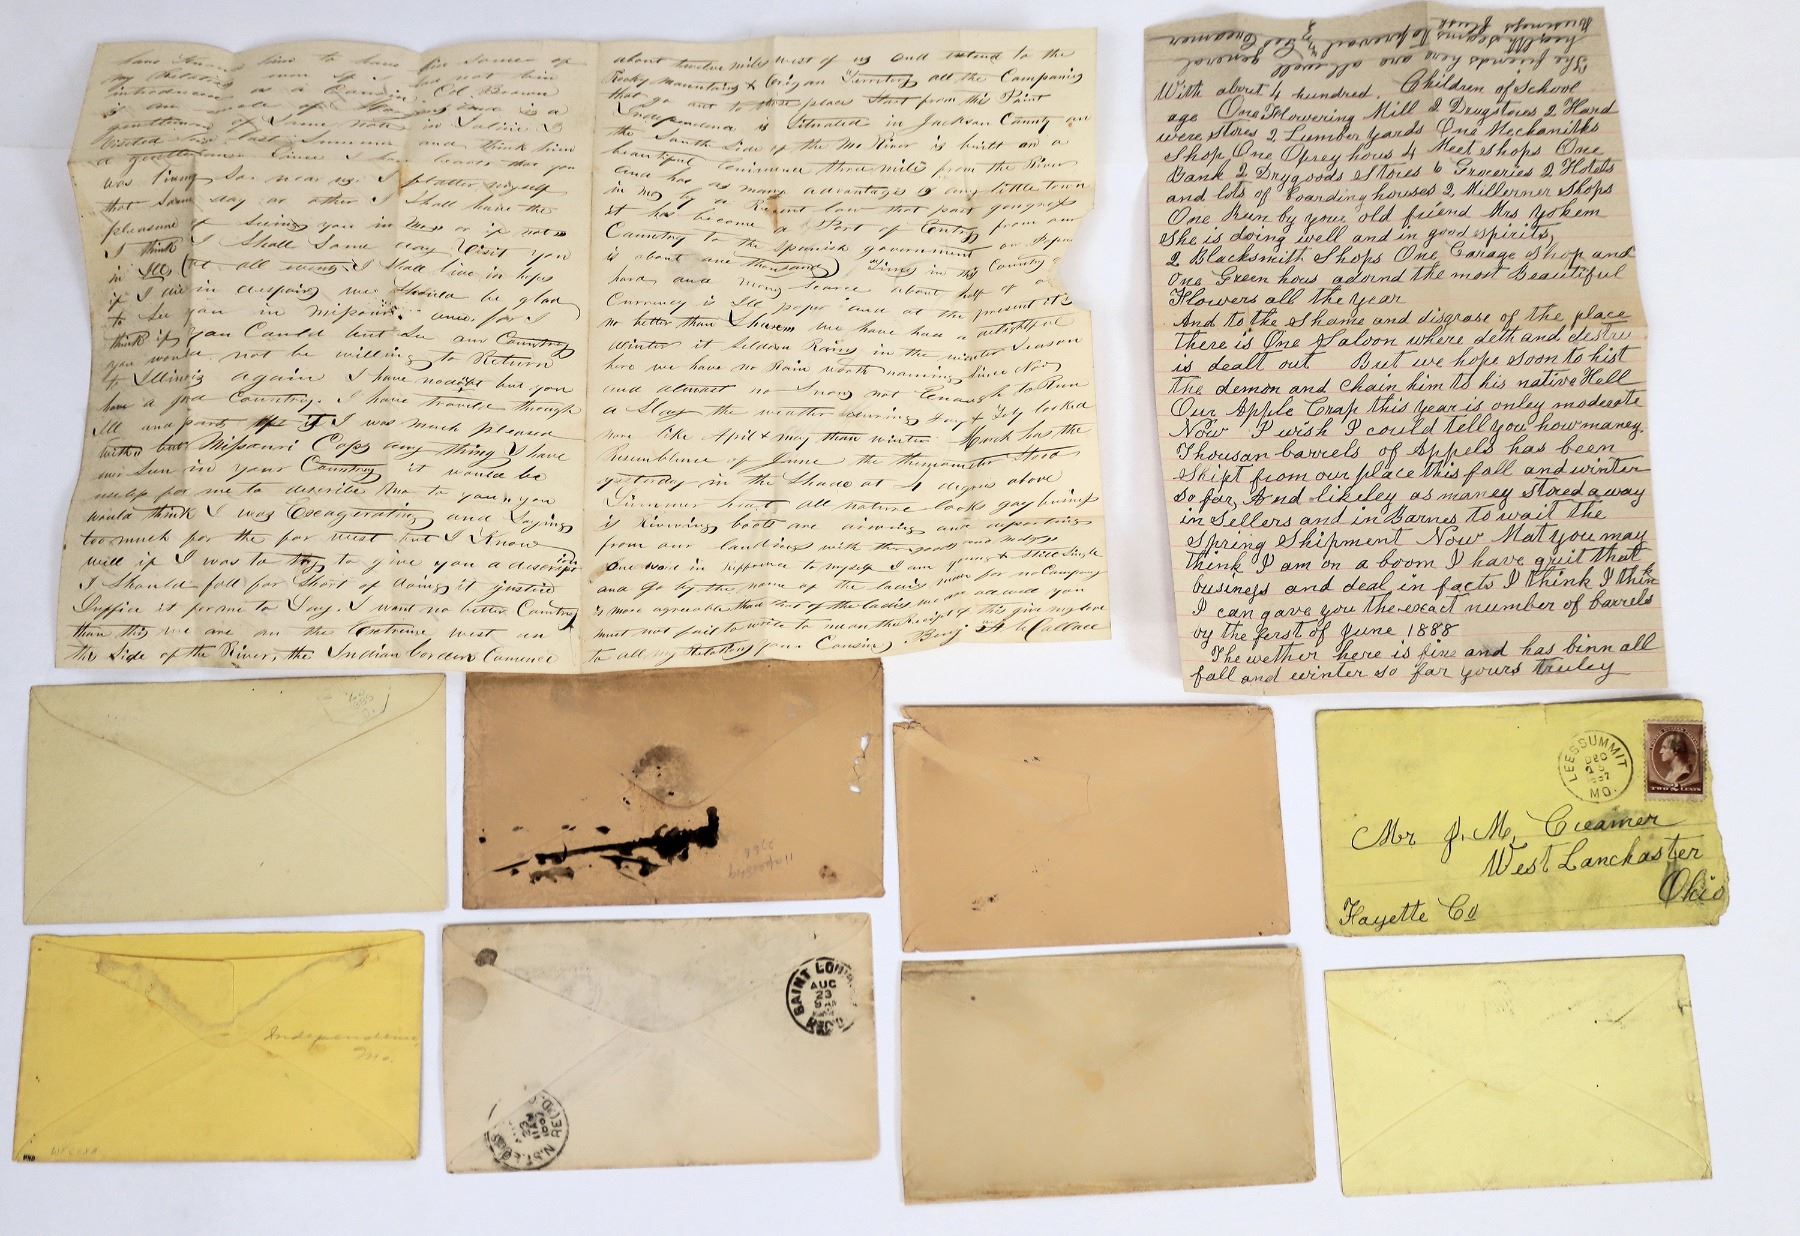 have
my Relations even if I had not bin
introduced as a Cousin. Ed. Brown
is an uncle of
gentleman of some note in Saline I
Visited him last Summer and think him
a gentleman. Since I have learned that you
was living so near us. I flatter myself
that some day or other I shall have the
pleasure of seeing you in Mo or if not
I think I shall some day Visit you
in Ill (at all events I shall live in hopes
if I die in despair, we should be glad
to See you in Missouri once, for I
think if you Could but See our Country
you would not be willing to Return
to Illinois again I have no doubt but you
have a good Country. I have traveled through
Ill and parts of it I was much pleased
with it but Missouri Caps any thing I have
ever Seen in your Country it would be
useless for me to describe Mo to you, you
would think I was Exagerating and Saying
too much for the far west but I Know
will if I was to try to give you a descript
I should fall far Short of doing it justice
Suffice it for me to Say. I want no better Country
than this we are on the Extreme west on
this Side of the River, the Indian border Comence
about twelve miles west of us and extend to the
Rocky mountains & Origan Territory all the Companies
that go out to those places Start from this Point
Independence is Situated in Jackson County on
the South Side of the Mo River is built on a
beautiful eminence three miles from the River
and has as many advantages as any little town
in Mo by a Recent law that past Congress
it has become a Port of Entry from our
Country to the Spanish government
is about one thousand) Times in this Country
hard and money scarce about half of
Currency is Ill paper and at the present it is
no better than we have had a delightful
winter it Seldom Rains in the winter Season
here we have no Rain worth naming Since Nov
and almost no Snow not Enough to Run
a Slay the weather during Jany & Feby looked
more like April & may than winter March has the
Resemblence of June the thermometer Stood
yesterday in the Shade at 4 degrees above
Summer heat, all nature looks gay business
is Reviving boats are ariving and departing
from our landing with the goods and
one word in refference to myself I am young & Still Single
and go by the name of the ladies man for no Company
is more agreeable than that of the ladies
must not fail to write to me on the Receipt of this give my love
to all my Relations your Cousin Benj
The friends here are all well general
health seams to prevail Geo Creamer
Business Rusk
With about 4 hundred. Children of School
age One Flowering Mill 2 Drugstores 2 Hard
were stores 2 Lumber yards One Meckanikks
Shop One Oprey hous 4 Meet shops One
Bank 2 Drygoods Stores 6 Groceries 2 Hotels
and lots of Boarding houses 2 Millerner Shops
One Run by your old friend Mrs Yokem
She is doing well and in good spirits,
2 Blacksmith Shops One Garage Shop and
One Green hous adornd the most Beautiful
Flowers all the year
And to the shame and disgrase of the place
there is One Saloon where deth and destru
is dealt out But we hope soon to hist
the demon and chain him to his native Hell
Our Apple Crap this year is onley moderate
Now I wish I could tell you how maney.
Thousan barrels of Appels has been
Skipt from our place this fall and winter
so far, And likeley as maney stored away
in Sellers and in Barnes to wait the
Spring Shipment Now Mat you may
think I am on a boom I have quit that
business and deal in facts I think I think
I can gave you the exact number of barrels
by the ferst of June 1888
The wether here is fine and has binn all
fall and winter so far yours truley
LEES SUMMIT
DEC
MO.
TWO CENTS
Mr J. M. Creamer
West Lanchaster
Ohio
Fayette Co
Independence,
Mo.
SAINT LOUIS
AUC
23
REC'D
N. REC'D.